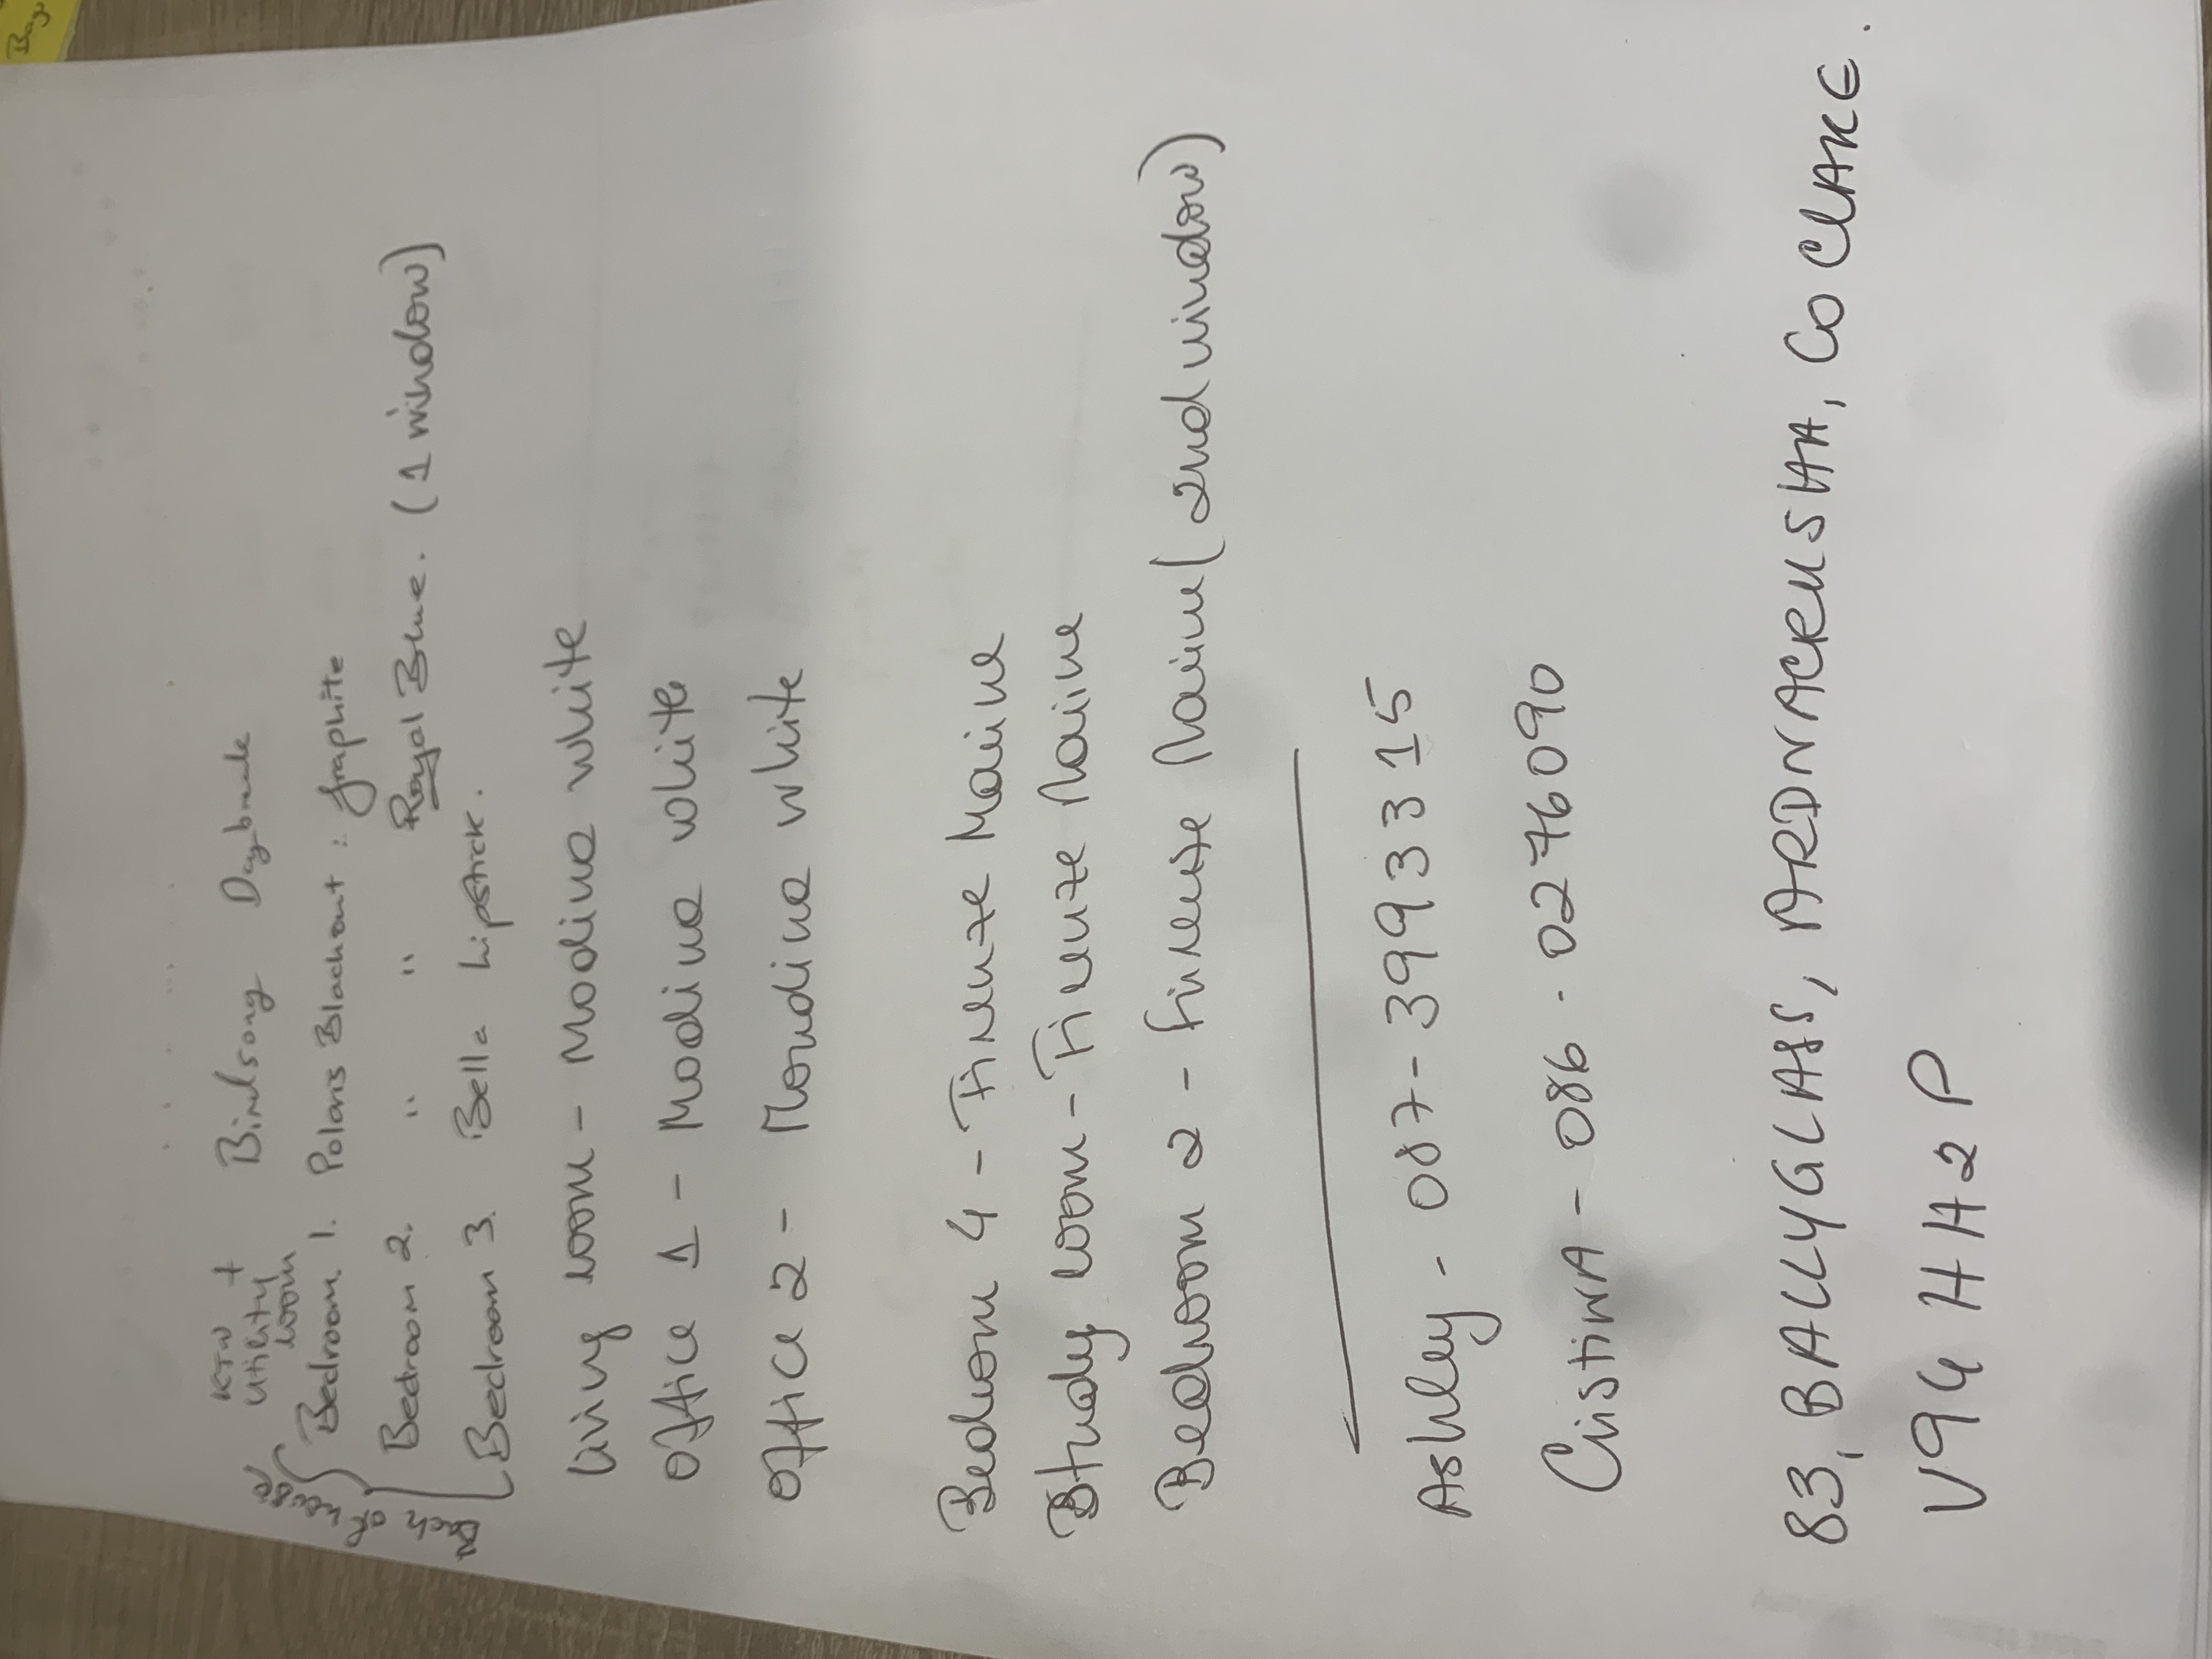 KTN + Utility room Birdsong Daybreak
Bedroom 1. Polaris Blackout : Graphite
Bedroom 2. " " Royal Blue. (1 window)
Bedroom 3. Bella Lipstick.
Living room - Modina white
Office 1 - Modina white
Office 2 - Mondina white
Bedroom 4 - Firenze Marine
Study room - Firenze Marine
Bedroom 2 - Firenze Marine (2nd window)
Ashley - 087-3993315
CristinA - 086-0276090
83, BALLYGLASS, ARDNACRUSHA, CO CLARE.
V94 HH2P